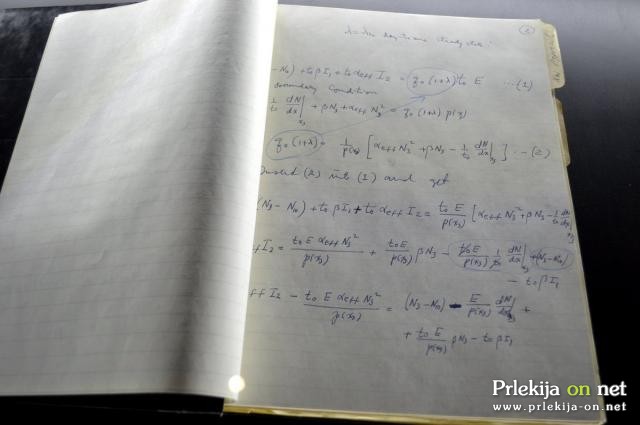 (2)
steady state.
-N₀) + t₀ β I₁ + t₀ α_eff I₂ = q₀ (1+λ) t₀ E ---(1)
boundary condition
1/t₀ dN/dx|x₃ + β N₃ + α_eff N₃² = q₀ (1+λ) p(x₃)
q₀ (1+λ) = 1/p(x₃) [α_eff N₃² + β N₃ - 1/t₀ dN/dx|x₃] ---(2)
(2) into (1) and get
(N₃-N₀) + t₀ β I₁ + t₀ α_eff I₂ = t₀ E/p(x₃) [α_eff N₃² + β N₃ - 1/t₀ dN/dx|x₃
ff I₂ = t₀ E α_eff N₃²/p(x₃) + t₀ E/p(x₃) β N₃ - t₀ E/p(x₃) 1/t₀ dN/dx|x₃ + (N₃-N₀)
- t₀ β I₁
ff I₂ - t₀ E α_eff N₃²/p(x₃) = (N₃-N₀) - E/p(x₃) dN/dx|x₃ +
+ t₀ E/p(x₃) β N₃ - t₀ β I₁
Prlekija on net
www.prlekija-on.net